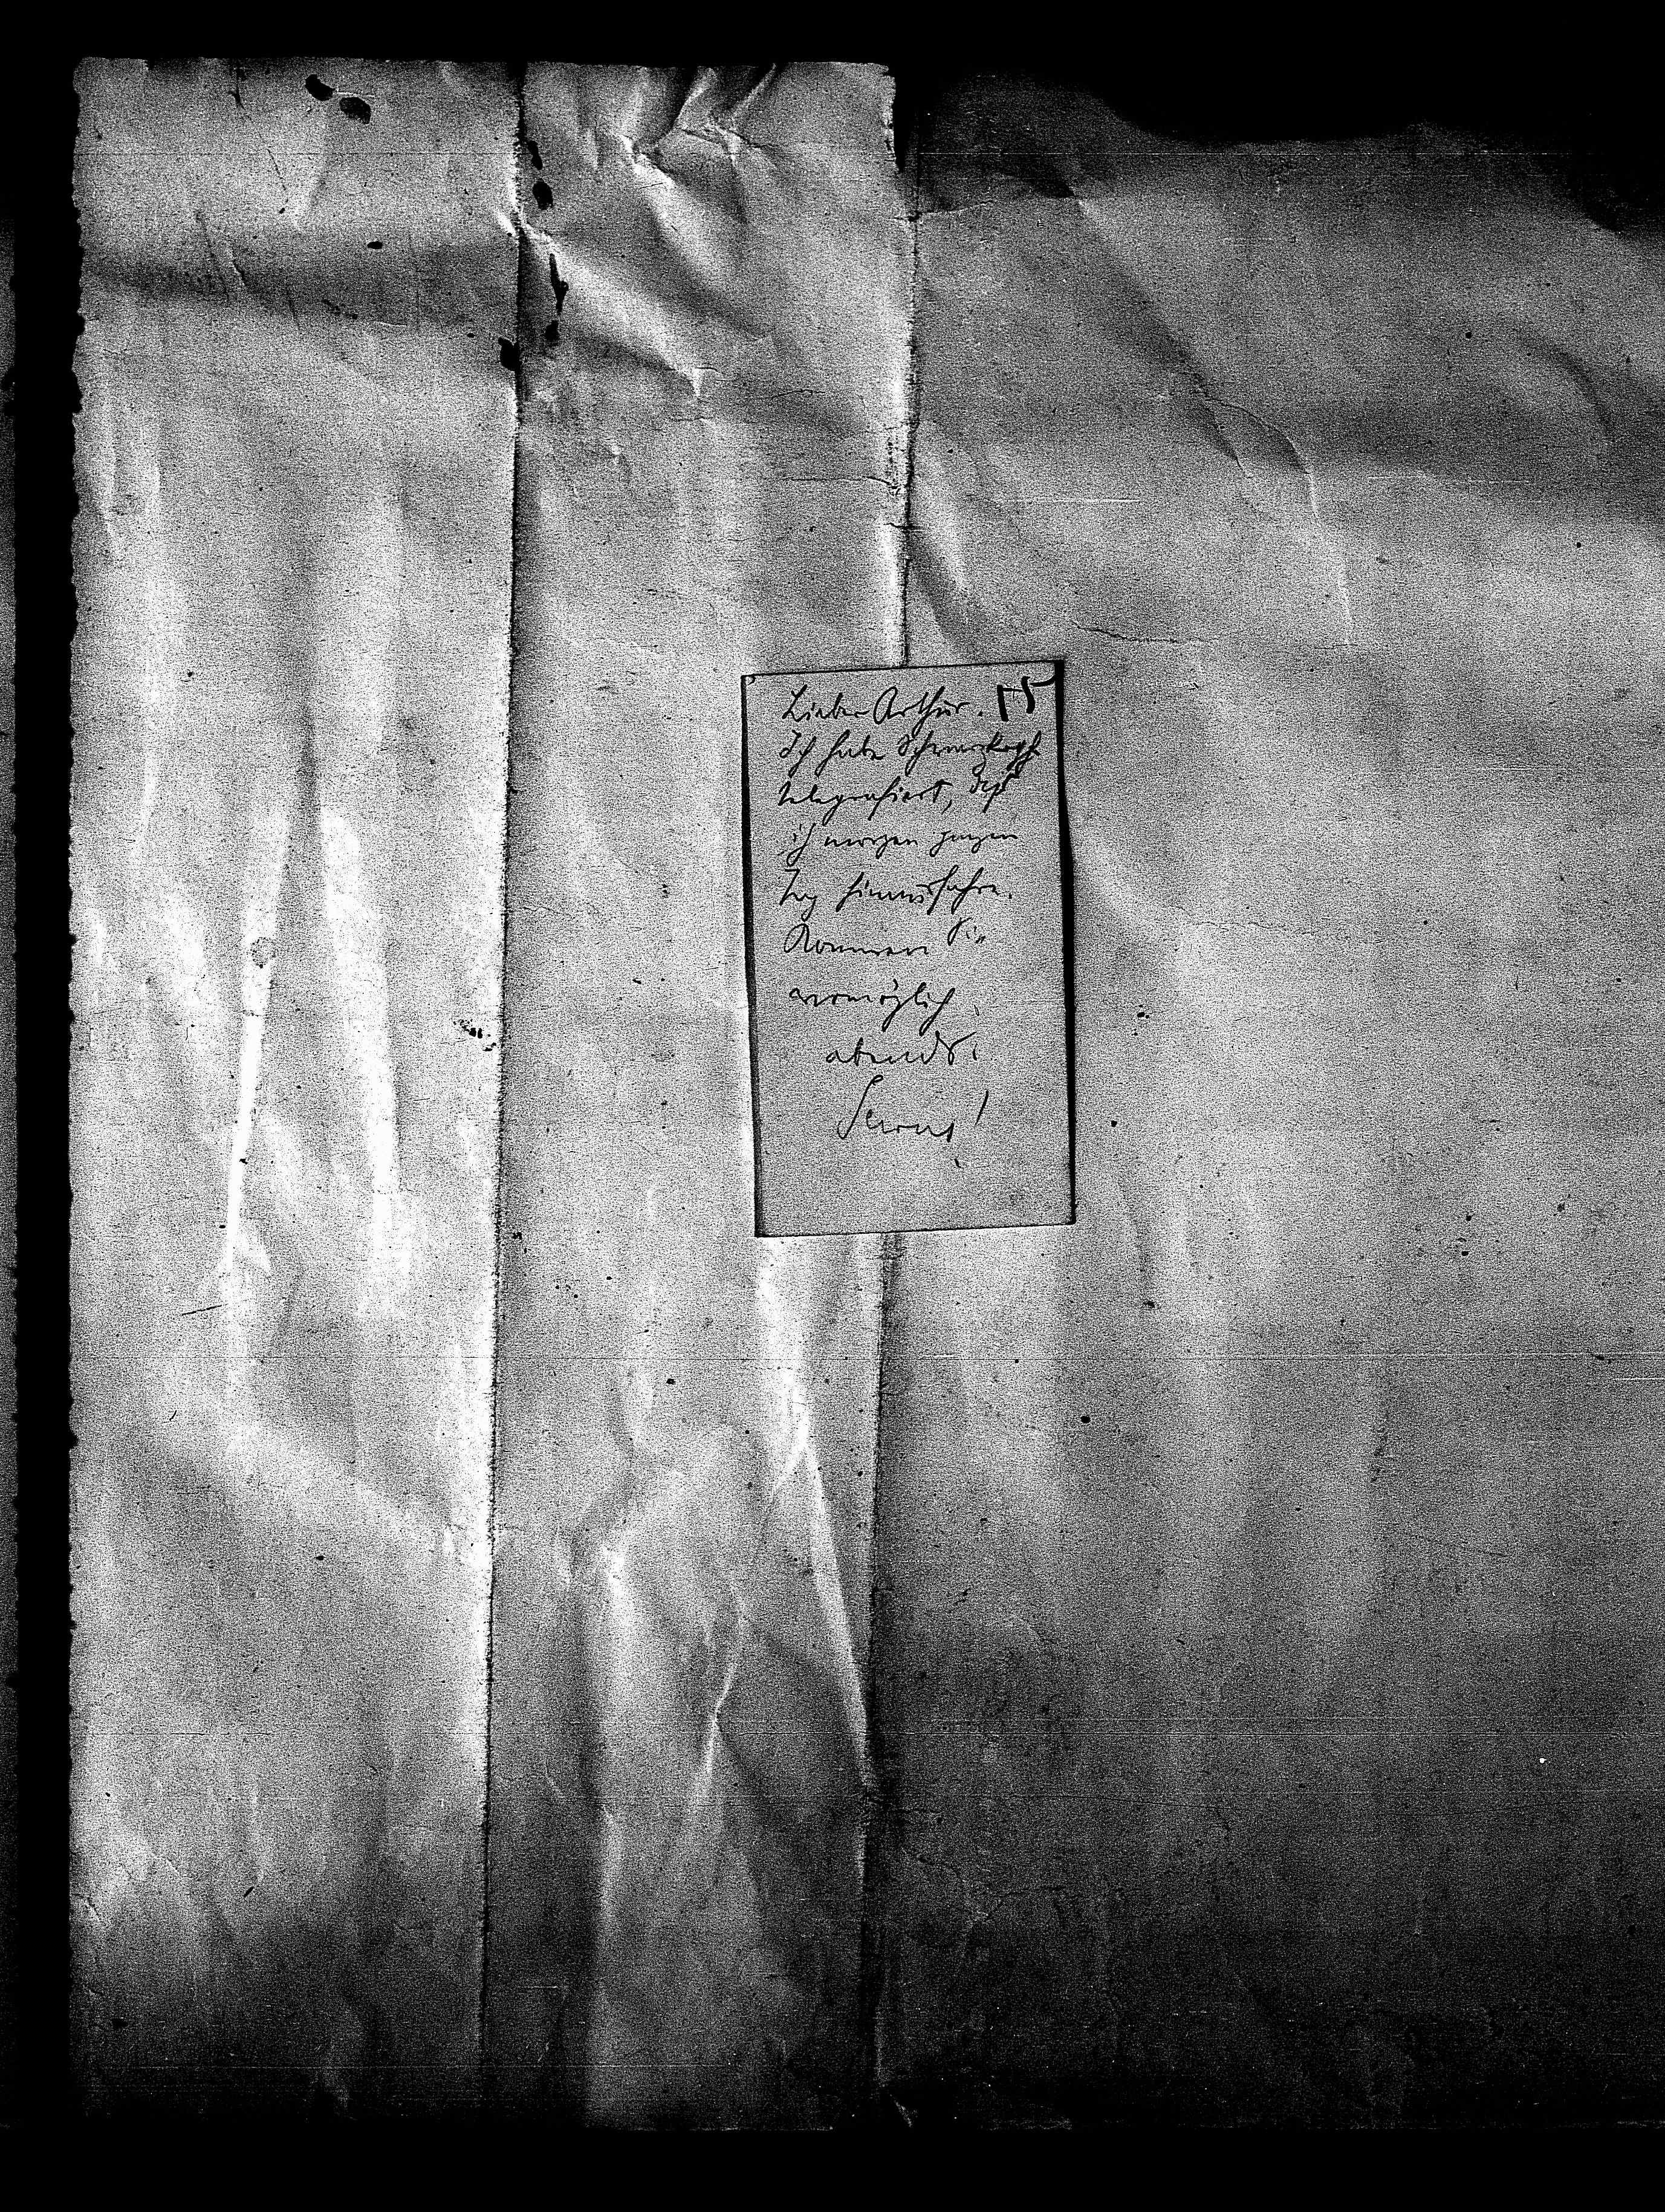 Lieber Arthur. 15
Ich habe Schwarzkopf
telegrafiert, daß
ich morgen gegen
hinausfahre.
Kommen Sie
womöglich
abends.
Servus!